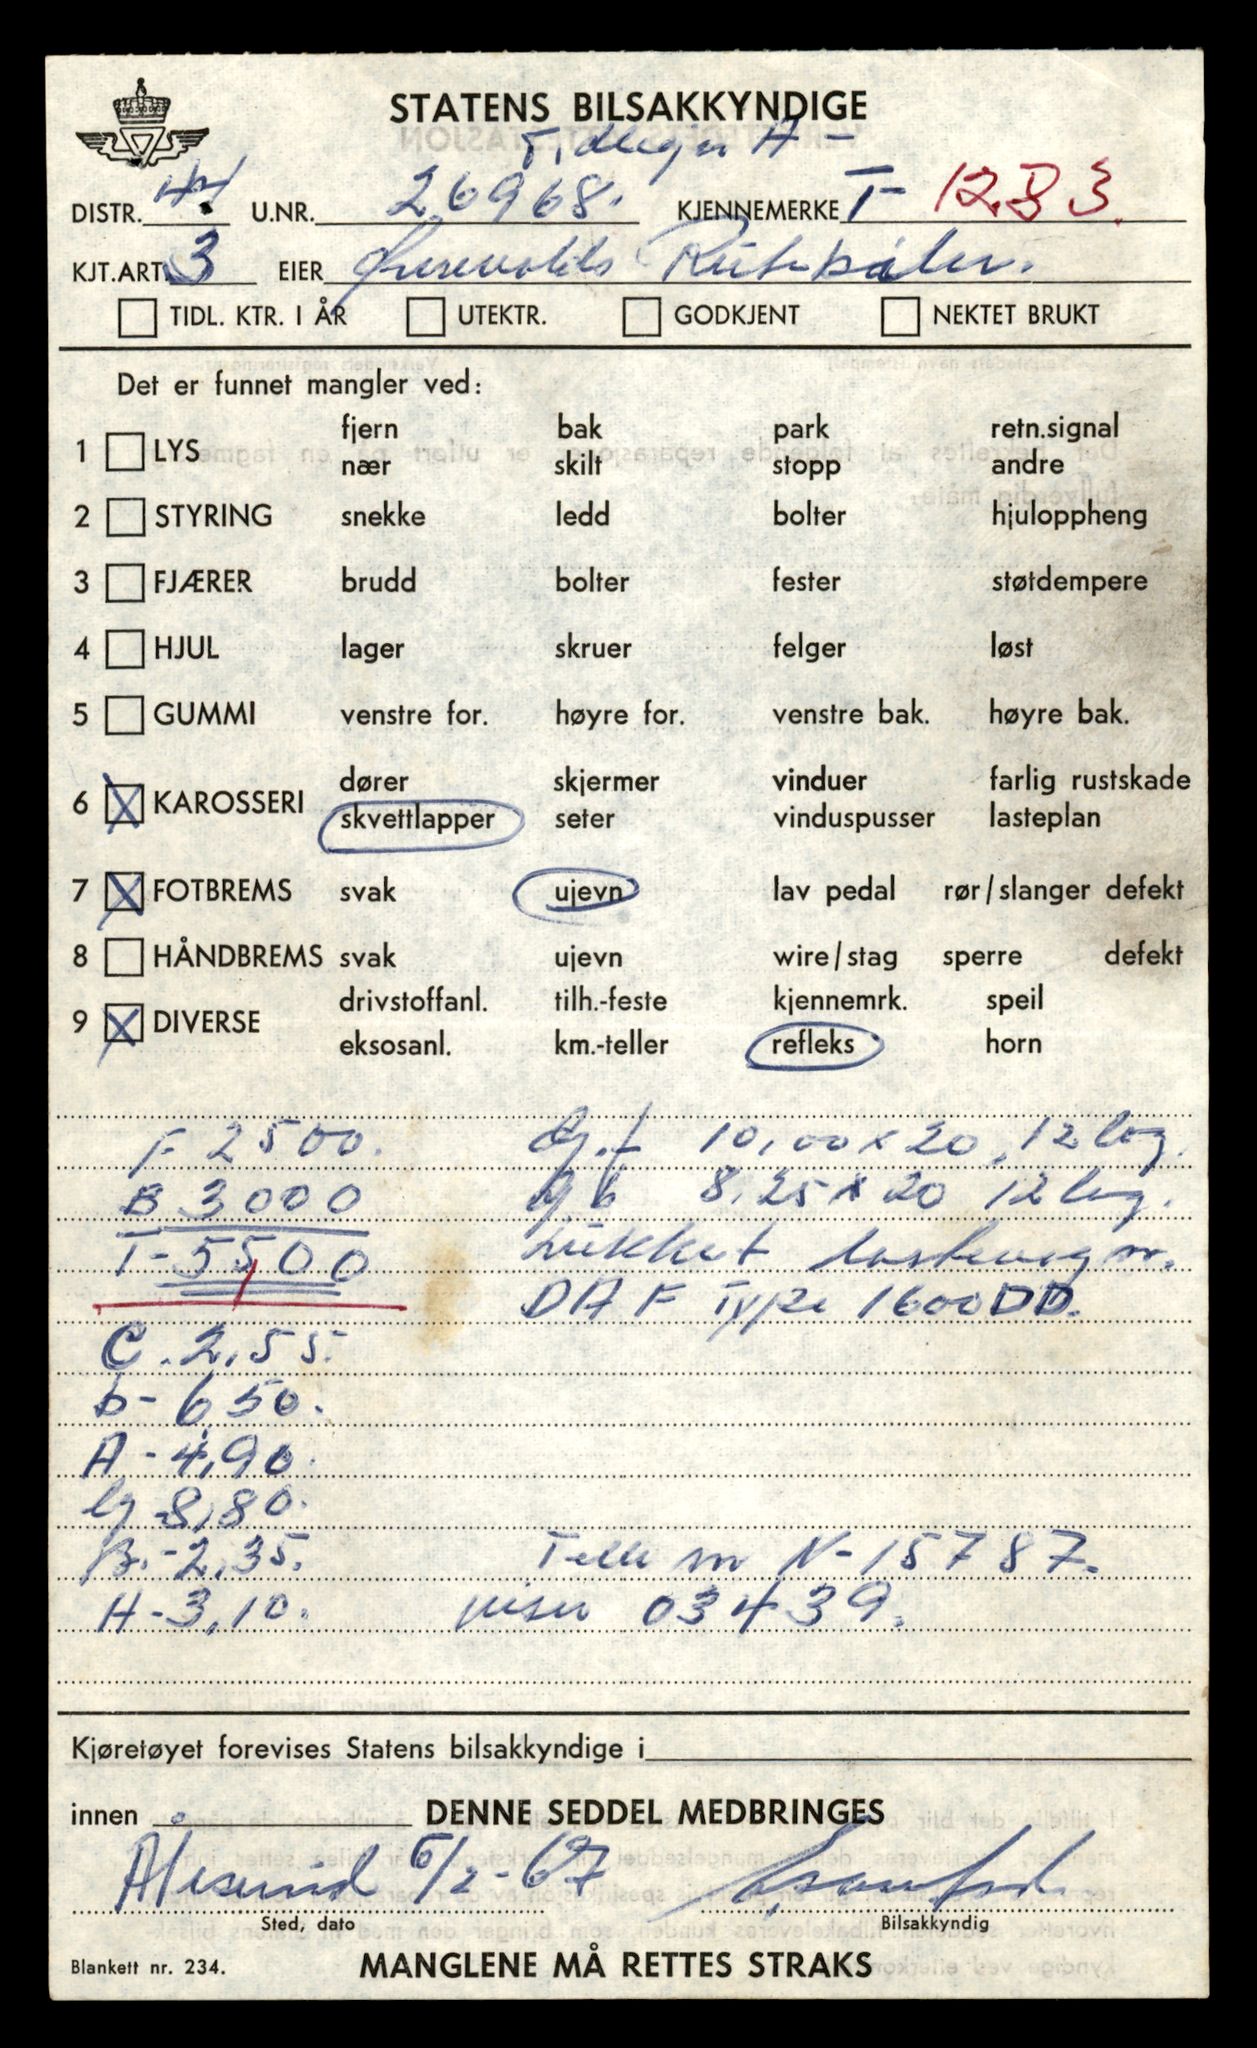 STATENS BILSAKKYNDIGE
Tidligere A-
DISTR. 14 U.NR. 26968. KJENNEMERKE T- 1283
KJT.ART. 3 EIER Rutebiler.
TIDL. KTR. I ÅR UTEKTR. GODKJENT NEKTET BRUKT
Det er funnet mangler ved:
fjern bak park retn.signal
1 LYS
nær skilt stopp andre
2 STYRING snekke ledd bolter hjuloppheng
3 FJÆRER brudd bolter fester støtdempere
4 HJUL lager skruer felger løst
5 GUMMI venstre for. høyre for. venstre bak. høyre bak.
dører skjermer vinduer farlig rustskade
6 X KAROSSERI
skvettlapper seter vinduspusser lasteplan
7 X FOTBREMS svak ujevn lav pedal rør/slanger defekt
8 HÅNDBREMS svak ujevn wire/stag sperre defekt
drivstoffanl. tilh.-feste kjennemrk. speil
9 X DIVERSE
eksosanl. km.-teller refleks horn
F 2500. dg.f 10,00x20, 12 lag.
B 3000 dg b 8.25x20 12 lag.
T-5500 Lukket lastevogn.
DAF Type 1600DD.
C. 2,55.
b- 6,50.
A - 4,90.
lg -8,80.
B.-2,35. Tell nr N-15787.
H-3,10. viser 03439.
Kjøretøyet forevises Statens bilsakkyndige i
innen DENNE SEDDEL MEDBRINGES
Ålesund 6/2-67
Sted, dato Bilsakkyndig
Blankett nr. 234. MANGLENE MÅ RETTES STRAKS